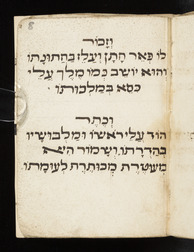 וזמר
לו פאר חתן ועבלי בחתונתו
והוא יושב כמו מלך עלי
כסא במלכותו
וכתר
הוד עלי ראשו ומלבושיו
בהדרתו ושמור
מעטרת מכותרת לעומתו